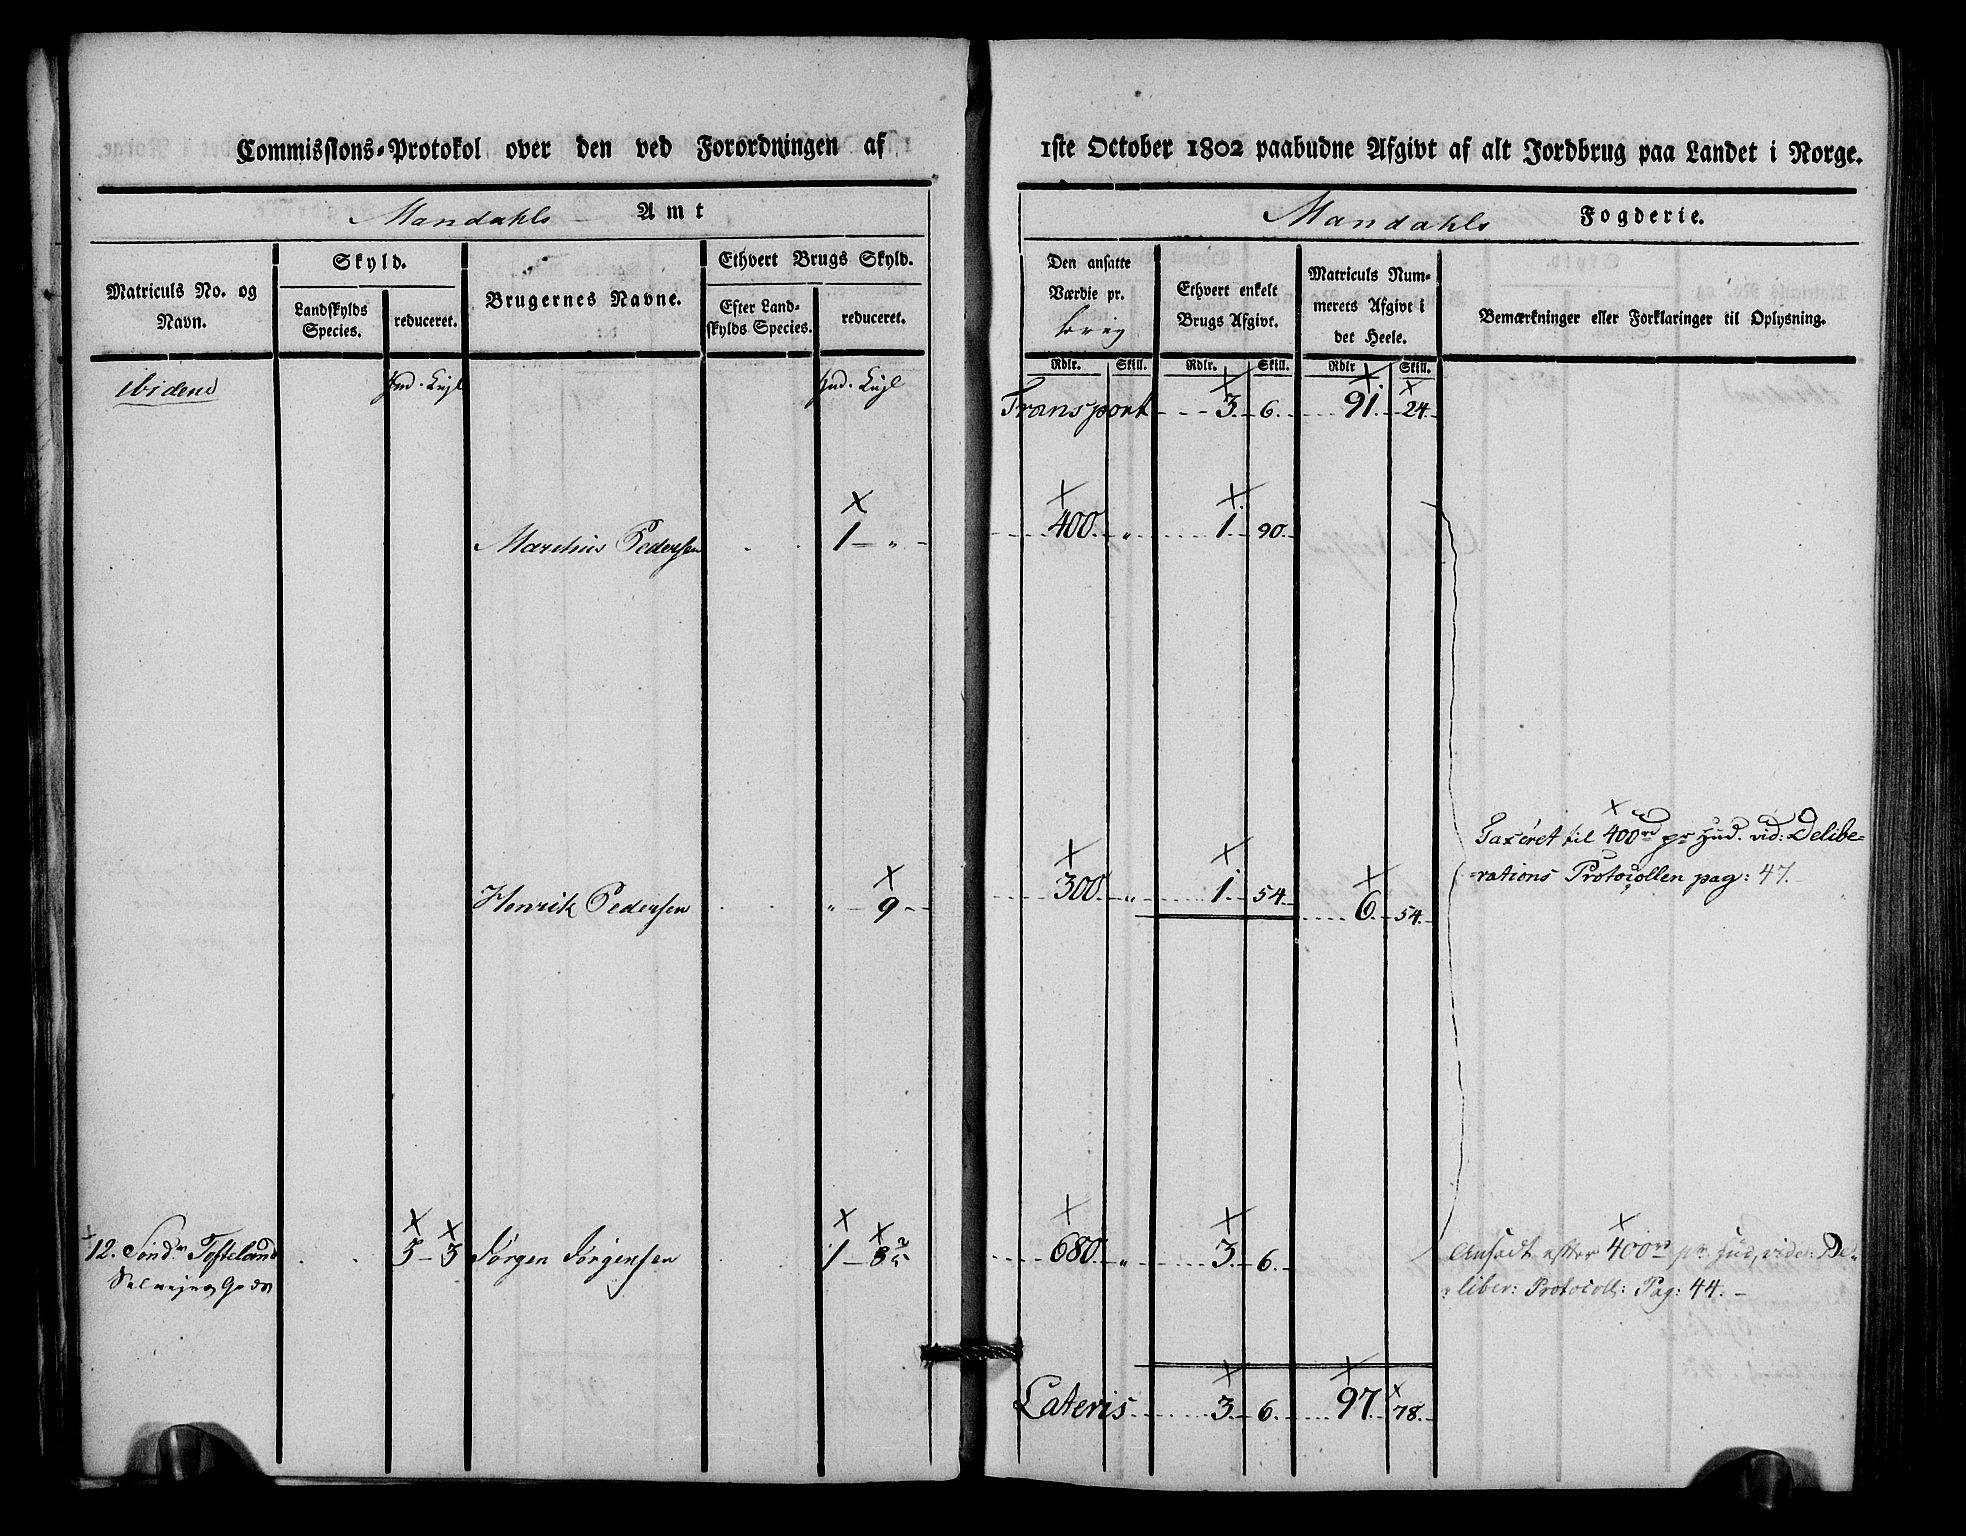 Commissions-Protokol over den ved Forordningen af
Mandahls Amt
Matriculs No. og Navn.
Skyld.
Landskylds Species.
reduceret.
Brugernes Navne.
Ethvert Brugs Skyld.
Efter Landskylds Species.
reduceret.
ibidem Hud. Hud.
Pedersen 1 - „
Henrik Pedersen „ - 9
12. Sønd. Tofteland 3 - 3 Jørgen Jørgensen 1 - 8
1ste October 1802 paabudne Afgivt af alt Jordbrug paa Landet i Norge.
Mandahls Fogderie.
Den ansatte Værdie pr.
Ethvert enkelt Brugs Afgivt.
Matriculs Nummerets Afgivt i det Heele.
Bemærkninger eller Forklaringer til Oplysning.
Rdlr. Skill. Rdlr. Skill. Rdlr Skill.
Transport 3. 6. 91. 24.
400 „ 1. 90.
Taxeret til 400rd pr Hud. vid: Delibe=
=rations Protocollen pag: 47.
300 „ 1. 54. 6. 54.
680 „ 3. 6. Ansadt efter 400 pr. Hud, vide: De=
liber: Protocoll: Pag: 44. -
Lateris 3. 6. 97. 78.